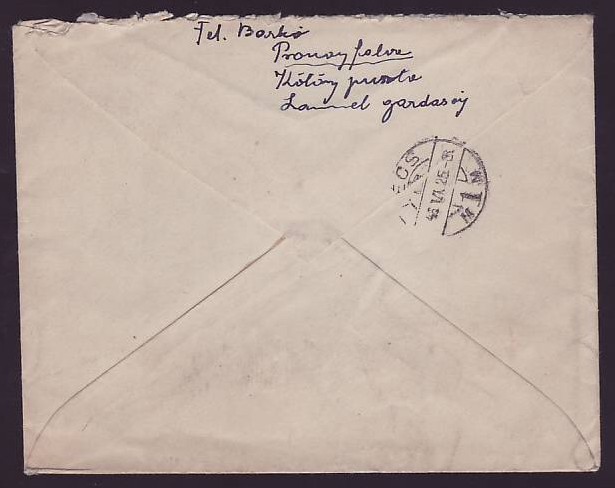 Fel. Barkó
Pronayfalva
Kötöny puszta
Lammel gardaság
ECS
43 VI. 25